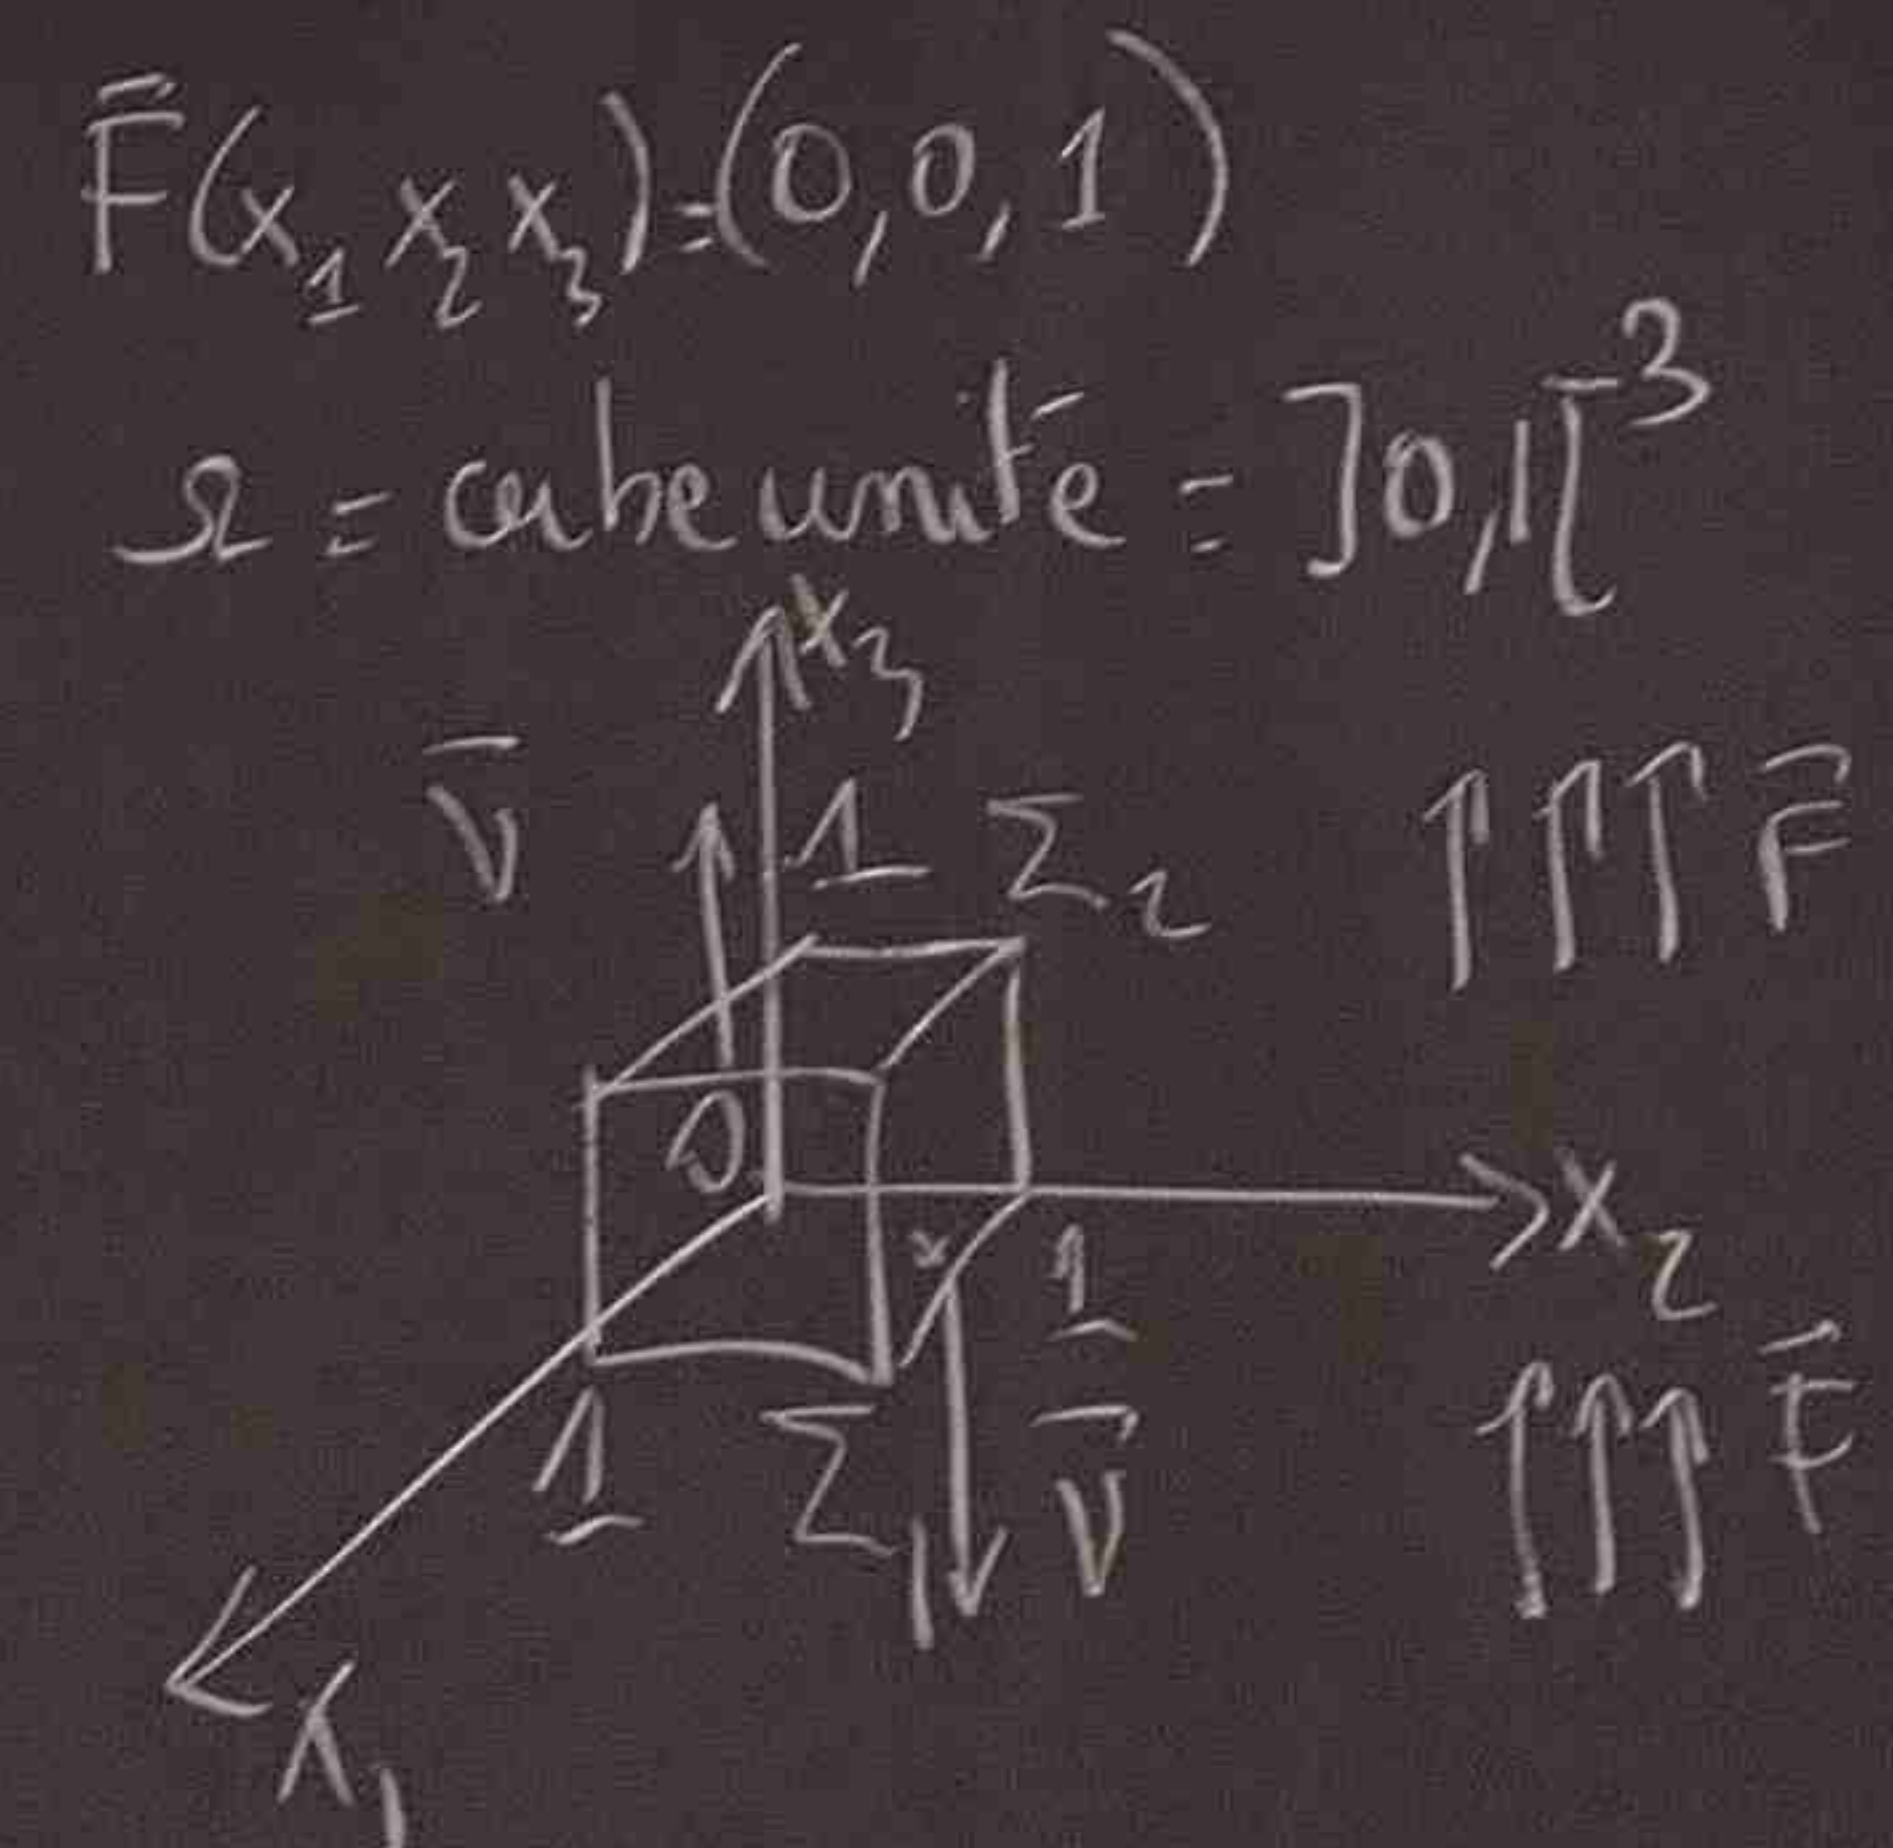 F⃗(x₁ x₂ x₃)=(0,0,1)
Ω = cube unité = ]0,1[³
x₃
ν⃗ 1 Σ₂ F⃗
0
x₂
1
1 Σ₁ ν⃗ F⃗
x₁